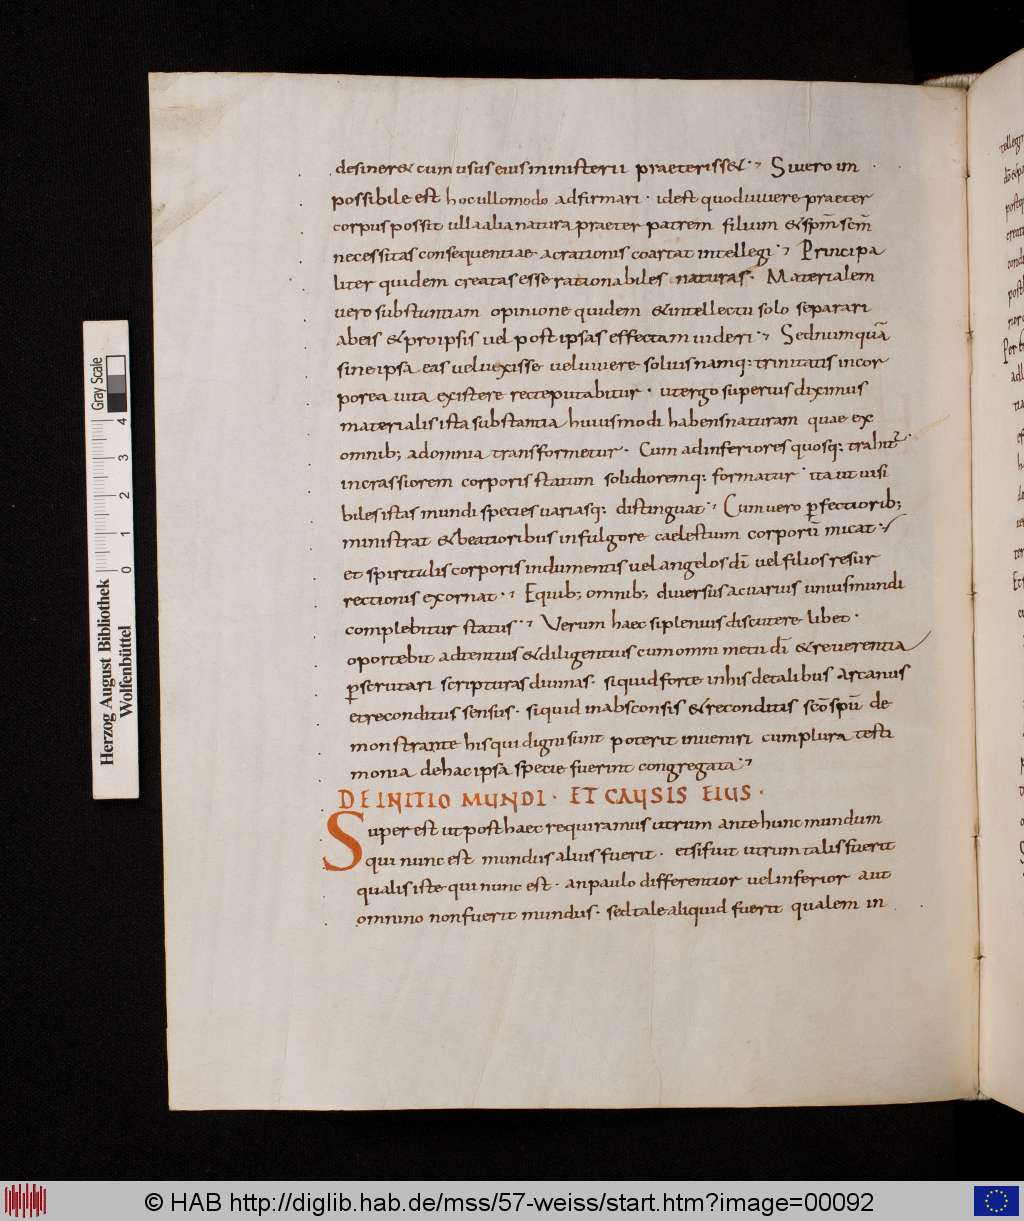 desineret cum usus eius ministerii praeterisset. Si vero im
possibile est hoc ullomodo adfirmari. idest quod vivere praeter
corpus possit ulla alia natura praeter patrem filium & spm scm
necessitas consequentiae ac rationis coartat intellegi. Principa
liter quidem creatas esse rationabiles naturas. Materialem
vero substantiam opinione quidem & intellectu solo separari
ab eis & pro ipsis vel post ipsas effectam videri. Sed numquā
sine ipsa eas vel vexisse vel vivere solius namq: trinitatis incor
porea vita existere recte putabitur. ut ergo superius diximus
materialis ista substantia huiusmodi habens naturam quae ex
omnib; ad omnia transformetur. Cum ad inferiores quosq: trahit
in crassiorem corporis statum solidioremq: formatur ita ut visi
biles istas mundi species variasq: distinguat. Cum vero pfectiorib;
ministrat & beatioribus in fulgore caelestium corporū micat.
et spiritalis corporis indumentis vel angelos dī vel filios resur
rectionis exornat. E quib; omnib; diversus ac varius unius mundi
complebitur status. Verum haec si plenius discutere libet.
oportebit adtentius & diligentius cum omni metu dī & reverentia
pscrutari scripturas divinas. si quid forte in his de talibus arcanus
et reconditus sensus. si quid in absconsis & reconditis scō spū de
monstrante his qui digni sunt poterit inveniri cum plura testi
monia de hac ipsa specie fuerint congregata.
DE INITIO MUNDI. ET CAUSIS EIUS.
Super est ut post haec requiramus utrum ante hunc mundum
qui nunc est mundus alius fuerit. et si fuit utrum talis fuerit
qualis iste qui nunc est. an paulo differentior vel inferior aut
omnino non fuerit mundus. sed tale aliquid fuerit qualem in
Gray Scale
0 1 2 3 4
Herzog August Bibliothek
Wolfenbüttel
© HAB http://diglib.hab.de/mss/57-weiss/start.htm?image=00092